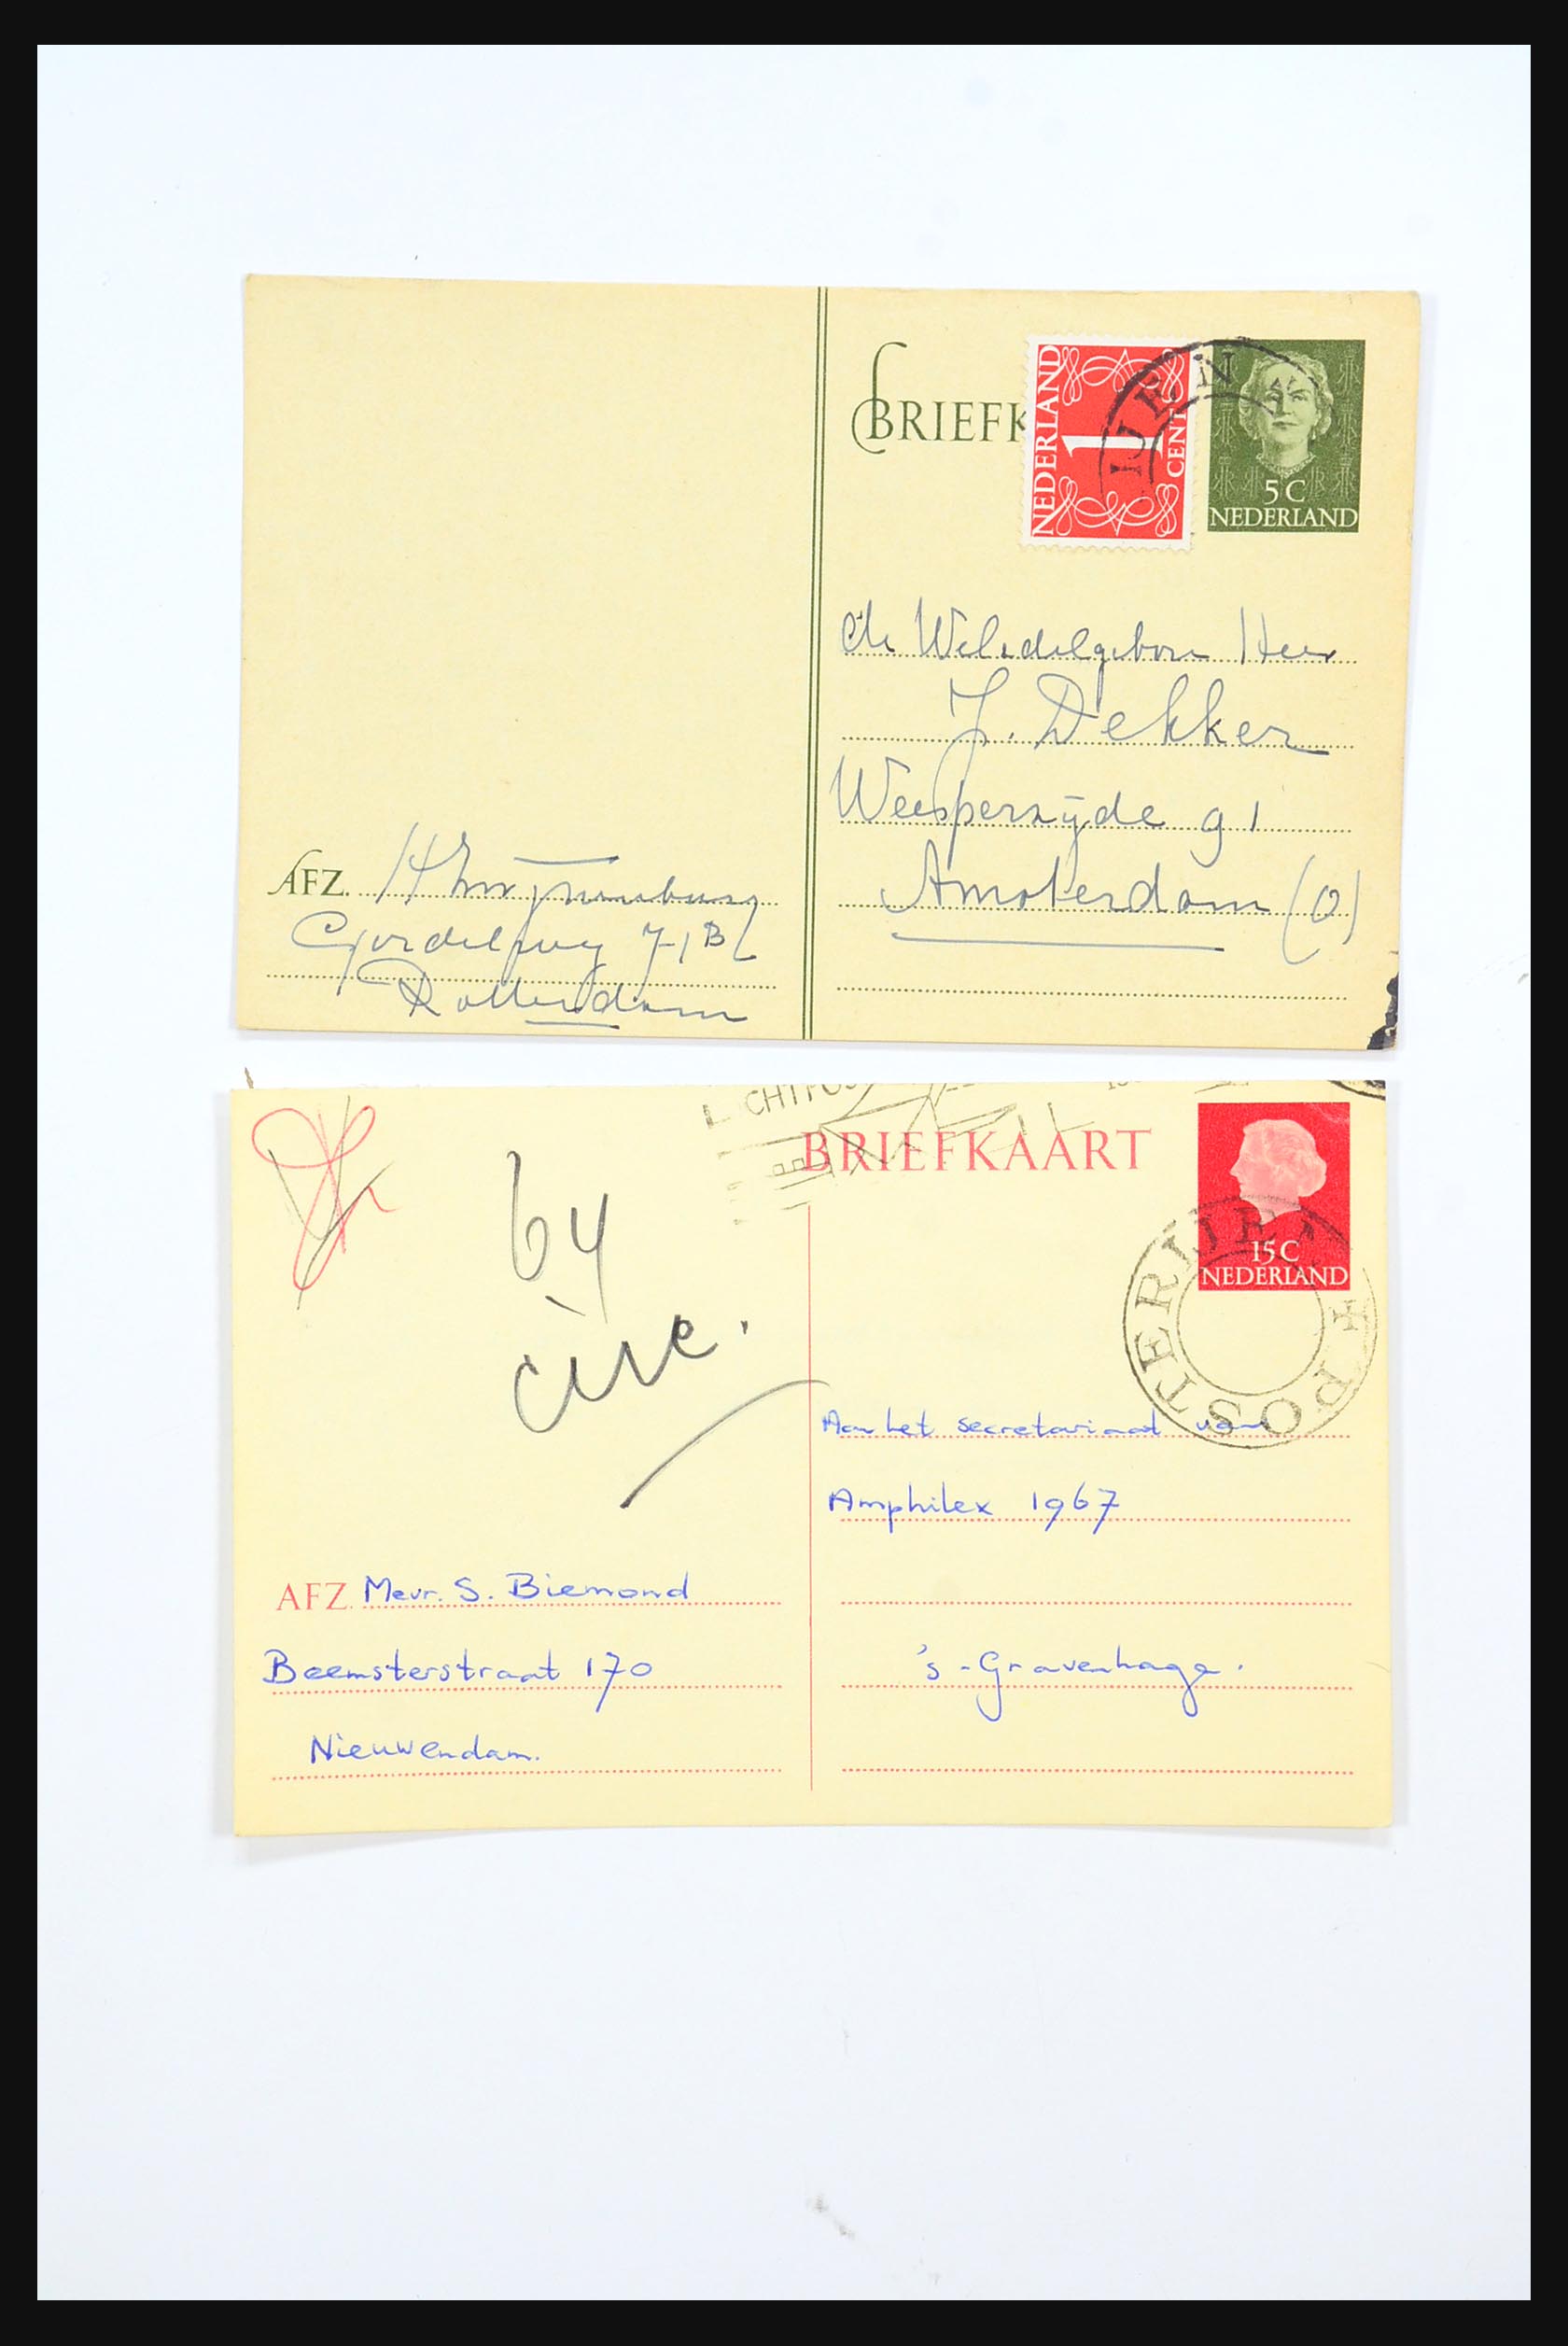 BRIEFK
NEDERLAND
1
CENT
5 C
NEDERLAND
IJEN
J. Dekker
Weesperzijde 91
Amsterdam (O)
AFZ.
Rotterdam
CHTPOS
BRIEFKAART
15 C
NEDERLAND
POSTERIJEN
64
Aan het secretariaat van
Amphilex 1967
's-Gravenhage.
AFZ. Mevr. S. Biemond
Beemsterstraat 170
Nieuwendam.